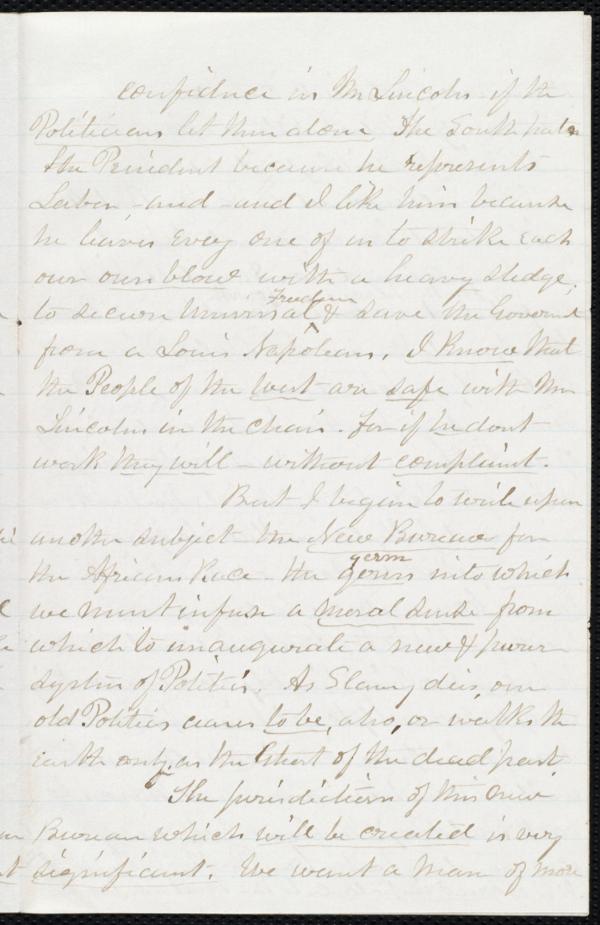 confidence in Mr Lincoln if the
Politicians let them alone The South hates
the President because he represents
Labor - and - and I like him because
he leaves every one of us to strike each
our own blow with a heavy sledge,
to secure Universal Freedom & save the Governmt
from a Louis Napolean. I Know that
the People of the West are safe with Mr
Lincoln in the chair. For if he dont
work they will - without complaint.
But I begin to write upon
another subject - the New Bureau for
the African Race - the germ germ into which
we must infuse a moral sense from
which to inaugurate a new & purer
system of Politics. As Slavery dies, our
old Politics ceases to be, also, or walks the
earth only as the Ghost of the dead past
The jurisdiction of this new
Bureau which will be created is very
significant. We want a Man of more